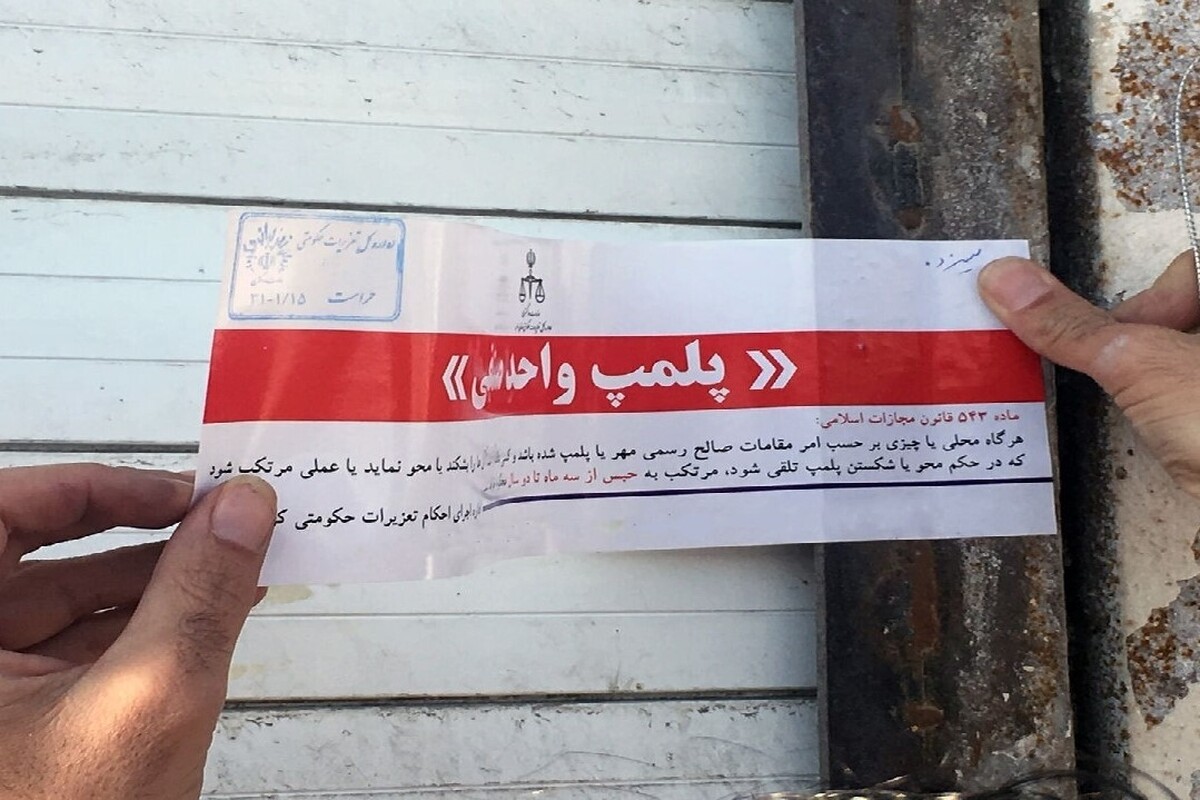 اداره کل تعزیرات حکومتی
حراست ۳۱-۱/۱۵
سیزده
« پلمپ واحد صنفی »
ماده ۵۴۳ قانون مجازات اسلامی:
هرگاه محلی یا چیزی بر حسب امر مقامات صالح رسمی مهر یا پلمپ شده باشد و کسی را بشکند یا محو نماید یا عملی مرتکب شود
که در حکم محو یا شکستن پلمپ تلقی شود، مرتکب به حبس از سه ماه تا دو سال
اجرای احکام تعزیرات حکومتی